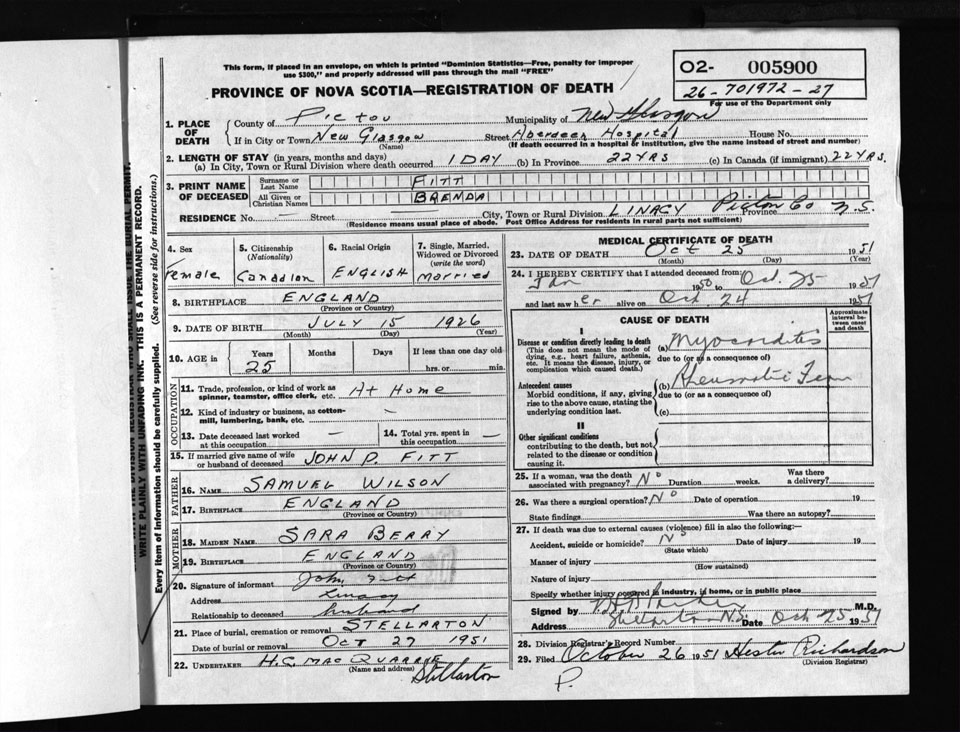 This form, if placed in an envelope, on which is printed "Dominion Statistics—Free, penalty for improper
use $300," and properly addressed will pass through the mail "FREE"
PROVINCE OF NOVA SCOTIA—REGISTRATION OF DEATH
O2- 005900
26-701972-27
For use of the Department only
WRITE PLAINLY WITH UNFADING INK. THIS IS A PERMANENT RECORD.
Every item of information should be carefully supplied. (See reverse side for instructions.)
1. PLACE OF DEATH
County of Pictou Municipality of New Glasgow
If in City or Town New Glasgow Street Aberdeen Hospital House No.
(Name) (If death occurred in a hospital or institution, give the name instead of street and number)
2. LENGTH OF STAY (in years, months and days)
(a) In City, Town or Rural Division where death occurred 1 DAY (b) In Province 22 YRS (c) In Canada (if immigrant) 22 YRS.
3. PRINT NAME OF DECEASED
Surname or Last Name FITT
All Given or Christian Names BRENDA
RESIDENCE No. — Street — City, Town or Rural Division LINACY Pictou Co Province N.S.
(Residence means usual place of abode. Post Office Address for residents in rural parts not sufficient)
4. Sex
Female
5. Citizenship
(Nationality)
Canadian
6. Racial Origin
ENGLISH
7. Single, Married, Widowed or Divorced
(write the word)
Married
8. BIRTHPLACE ENGLAND
(Province or Country)
9. DATE OF BIRTH JULY 15 1926
(Month) (Day) (Year)
10. AGE in Years Months Days If less than one day old
25 hrs. or min.
OCCUPATION
11. Trade, profession, or kind of work as
spinner, teamster, office clerk, etc. At Home
12. Kind of industry or business, as cotton-
mill, lumbering, bank, etc. —
13. Date deceased last worked
at this occupation —
14. Total yrs. spent in
this occupation —
15. If married give name of wife
or husband of deceased JOHN P. FITT
FATHER
16. NAME SAMUEL WILSON
17. BIRTHPLACE ENGLAND
(Province or Country)
MOTHER
18. MAIDEN NAME SARA BERRY
19. BIRTHPLACE ENGLAND
(Province or Country)
20. Signature of informant John Fitt
Address Linacy
Relationship to deceased husband
21. Place of burial, cremation or removal STELLARTON
Date of burial or removal OCT 27 1951
22. UNDERTAKER H.C. MacQUARRIE
(Name and address)
Stellarton
MEDICAL CERTIFICATE OF DEATH
23. DATE OF DEATH Oct 25 1951
(Month) (Day) (Year)
24. I HEREBY CERTIFY that I attended deceased from
Jan 1950 to Oct. 25 1951
and last saw her alive on Oct. 24 1951
CAUSE OF DEATH
Approximate interval between onset and death
I
Disease or condition directly leading to death
(This does not mean the mode of
dying, e.g., heart failure, asthenia,
etc. It means the disease, injury, or
complication which caused death.)
(a) Myocarditis
due to (or as a consequence of)
Antecedent causes
Morbid conditions, if any, giving
rise to the above cause, stating the
underlying condition last.
(b) Rheumatic Fever
due to (or as a consequence of)
(c)
II
Other significant conditions
contributing to the death, but not
related to the disease or condition
causing it.
25. If a woman, was the death
associated with pregnancy? No Duration weeks. Was there a delivery?
26. Was there a surgical operation? No Date of operation 19
State findings Was there an autopsy?
27. If death was due to external causes (violence) fill in also the following:—
Accident, suicide or homicide? No Date of injury 19
(State which)
Manner of injury
(How sustained)
Nature of injury
Specify whether injury occurred in industry, in home, or in public place
Signed by M.D.
Address Stellarton N.S. Date Oct 25 1951
28. Division Registrar's Record Number
29. Filed October 26 1951 Hester Richardson
(Division Registrar)
P.